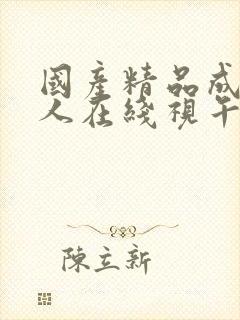 國產精品成
人在綫視午
陳立新